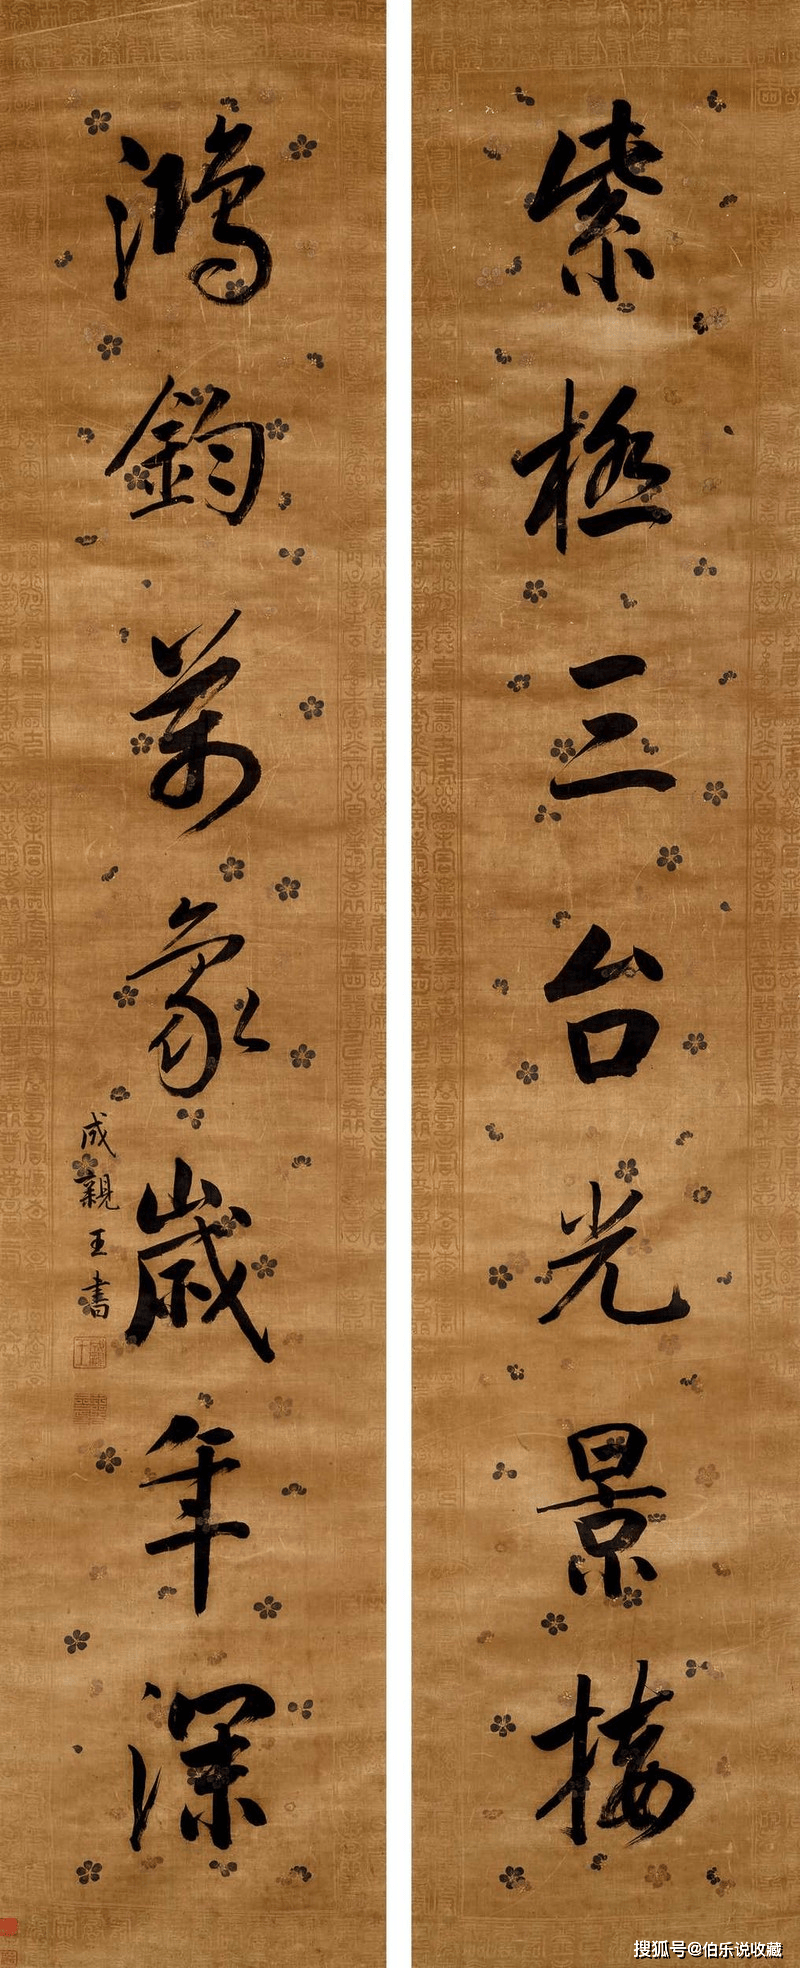 紫極三台光景接
鴻鈞萬象歲年深
成親王書
搜狐号@伯乐说收藏